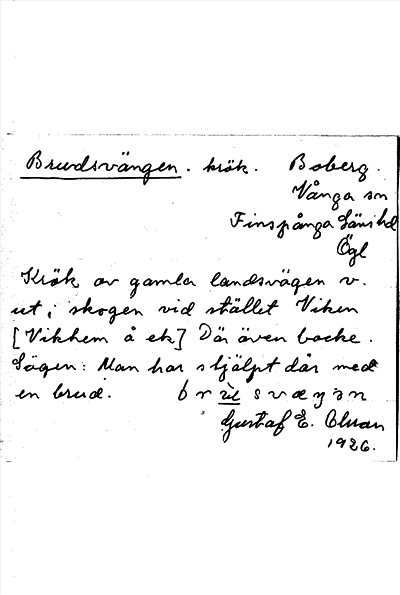 Brudsvängen. krök. Boberg.
Vånga sn
Finspånga läns hd
Ögl
Krök av gamla landsvägen v.
ut i skogen vid stället Viken
[Vikhem å ek] Där även backe.
Sägen: Man har stjälpt där med
en brud. 
Gustaf E. Olsson
1926.